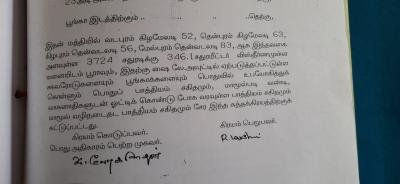 பூங்கா இடத்திற்கும் .. .. .. தெற்கு,
இதன் மத்தியில் வடபுறம் கிழமேலடி 52, தென்புறம் கிழமேலடி 63,
கிழபுறம் தென்வடலடி 56, மேல்புறம் தென்வடலடி 83, ஆக இந்தளவை
அளவுள்ள 3724 சதுரடிக்கு 346.1சதுரமீட்டர் விஸ்தீரணமுள்ள
மனையிடம் பூராவும், இதற்கு மைடி லே.அவுட்டில் ஏற்படுத்தப்பட்டுள்ள
சகலரோடுகளையும் பூங்காக்களையும் பொதுவில் உபயோகித்துக்
கொள்ளும் பொதுப் பாத்தியம் சகிதமும், மாமூல்படி வண்டி,
வாகனாதிகளுடன் ஓட்டிக் கொண்டு போக வரவுள்ள பாத்தியம் சகிதமும்
மாமூல் வழிநடைதட பாத்தியம் சகிதமும் சேர இந்த சுத்தக்கிரயத்திற்குக்
கட்டுப்பட்டது.
கிரயம் கொடுப்பவர். கிரயம் பெறுபவர்.
பொது அதிகாரம் பெற்ற முகவர்.